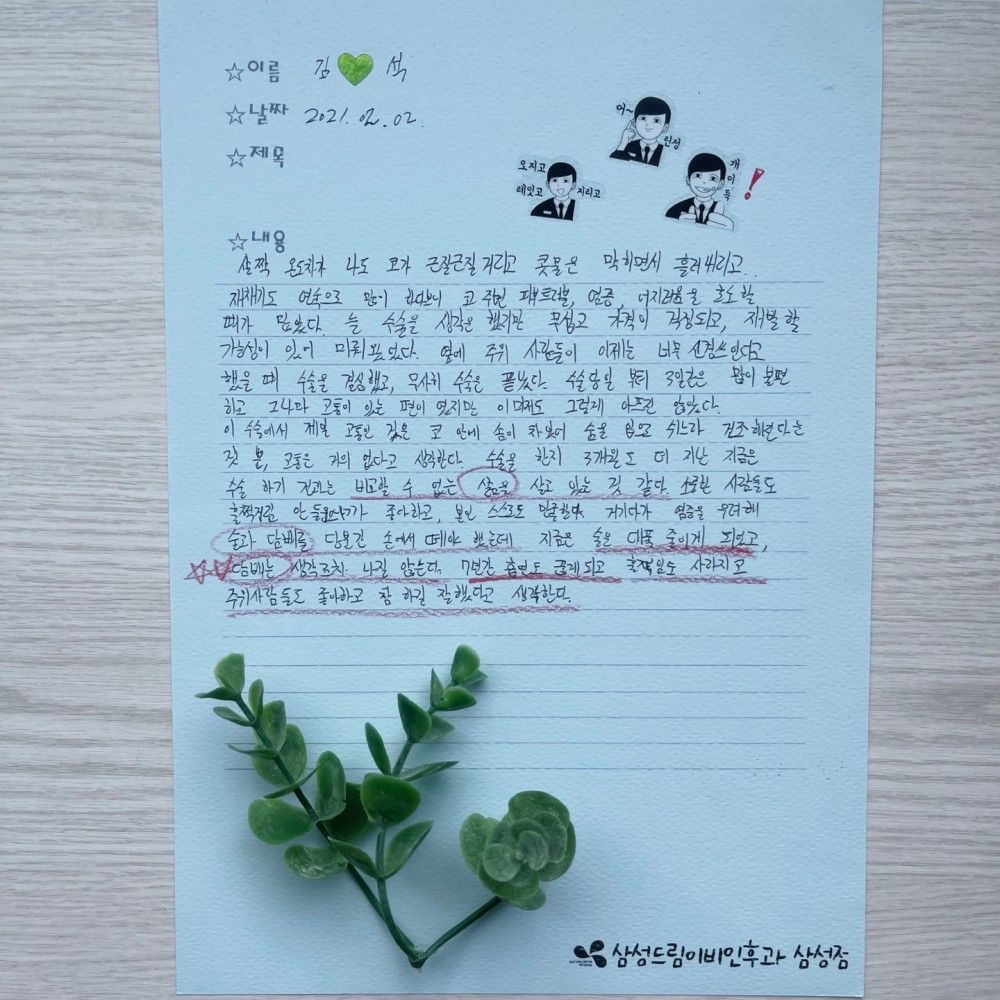 ☆이름 김 석
☆날짜 2021. 02. 02.
☆제목
어~
인정
오지고
레잇고 지리고
개
이
득
!
☆내용
살짝 온도차가 나도 코가 근질근질거리고 콧물은 막히면서 흘러내리고..
재채기도 연속으로 많이 코 주변 피부트러블, 염증, 어지러움을 호소할
때가 많았다. 늘 수술을 생각은 했지만 무섭고 가격이 걱정되고, 재발할
가능성이 있어 미뤄왔었다. 옆에 주위 사람들이 이제는 너무 신경쓰인다고
했을 때 수술을 결심했고, 무사히 수술은 끝났다. 수술당일 부터 3일간은 많이 불편
하고 그나마 고통이 있는 편이 었지만 이마저도 그렇게 아프진 않았다.
이 수술에서 제일 고통인 것은 코 안에 솜이 차있어 숨을 입으로 쉬느라 건조해진다는
것 뿐, 고통은 거의 없다고 생각한다. 수술을 한지 3개월도 더 지난 지금은
수술 하기 전과는 비교할 수 없는 삶을 살고 있는 것 같다. 소중한 사람들도
훌쩍거림 안 좋아하고, 본인 스스로도 만족한다. 거기다가 염증을 우려해
술과 담배를 당분간 손에서 떼야 했는데 지금은 술을 대폭 줄이게 되었고,
담배는 생각조차 나질 않는다. 7년간 흡연도 끊게되고 훌쩍임도 사라지고
주위사람들도 좋아하고 참 하길 잘했다고 생각한다.
삼성드림이비인후과 삼성점